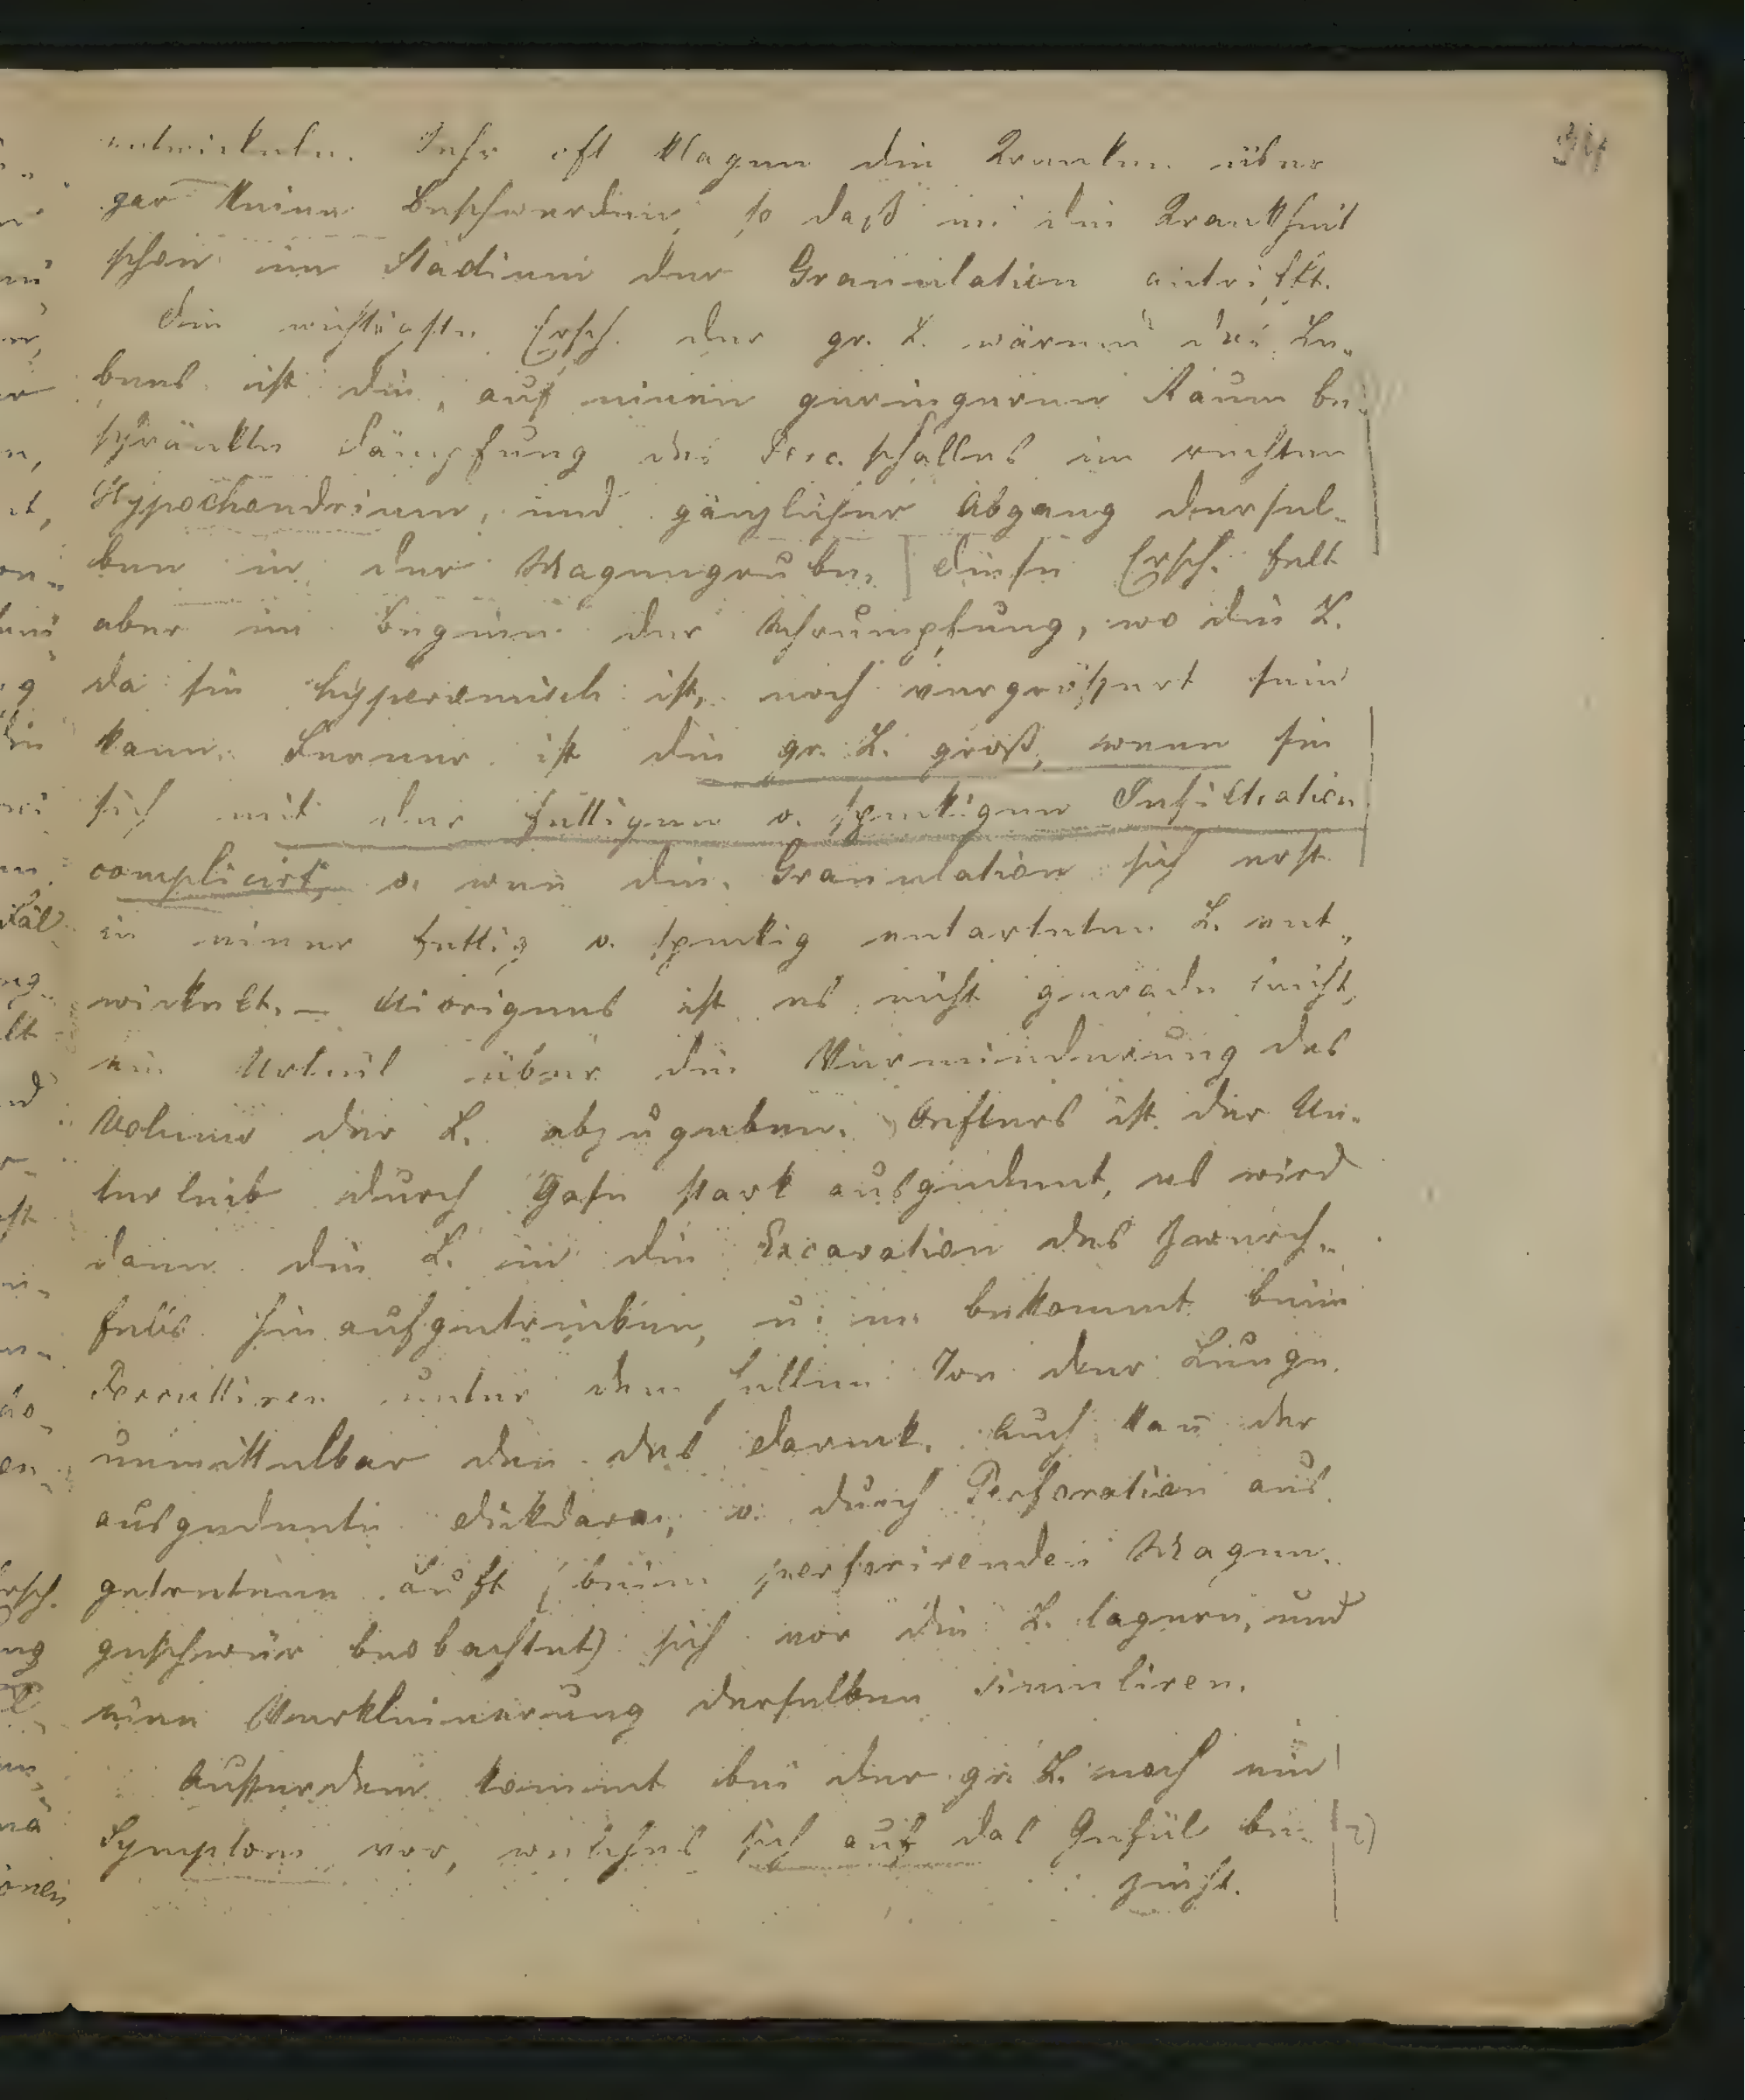 34
entwickeln. Sehr oft klagen die Kranken über
gar keine Beschwerden, so daß m. die Krankheit
schon im Stadium der Granulation antrifft.
Die wichtigste Ersch. der gr. L. wärend des Le-
bens ist die, auf einen geringeren Raum be-
schränkte Dämpfung des Perc. schalles im rechten
Hypochondrium, und gänzlicher Abgang dersel-
ben in der Magengrube. Diese Ersch. felt
aber im Beginn der Schrumpfung, wo die L.
da sie hyperämisch ist, noch vergrößert sein
kann. Ferner ist die gr. L. groß, wenn sie
sich mit der fettigen o. speckigen Infiltration
complicirt, o. wen̄ die Granulation sich erst
in einer fettig o. speckig entarteten L. ent-
wickelt. – Uibrigens ist es nicht gerade leicht,
ein Urteil über die Verminderung des
Volums der L. abzugeben. Oefters ist der Un-
terleib durch Gase stark ausgedent, es wird
dann die L. in die Excavation des Zwerch-
fells hinaufgetrieben, u. m. bekommt beim
Percutiren unter dem hellen Ton der Lunge
unmittelbar den des Darmk. Auch kan̄ der
ausgedente Dickdarm, o. durch Perforation aus
getretene Luft (beim perforirenden Magen-
geschwür beobachtet) sich vor die L. lagern, und
eine Verkleinerung derselben simuliren.
Außerdem kommt bei der gr. L. noch ein
Symptom vor, welches sich auf das Gefül be-
zieht.